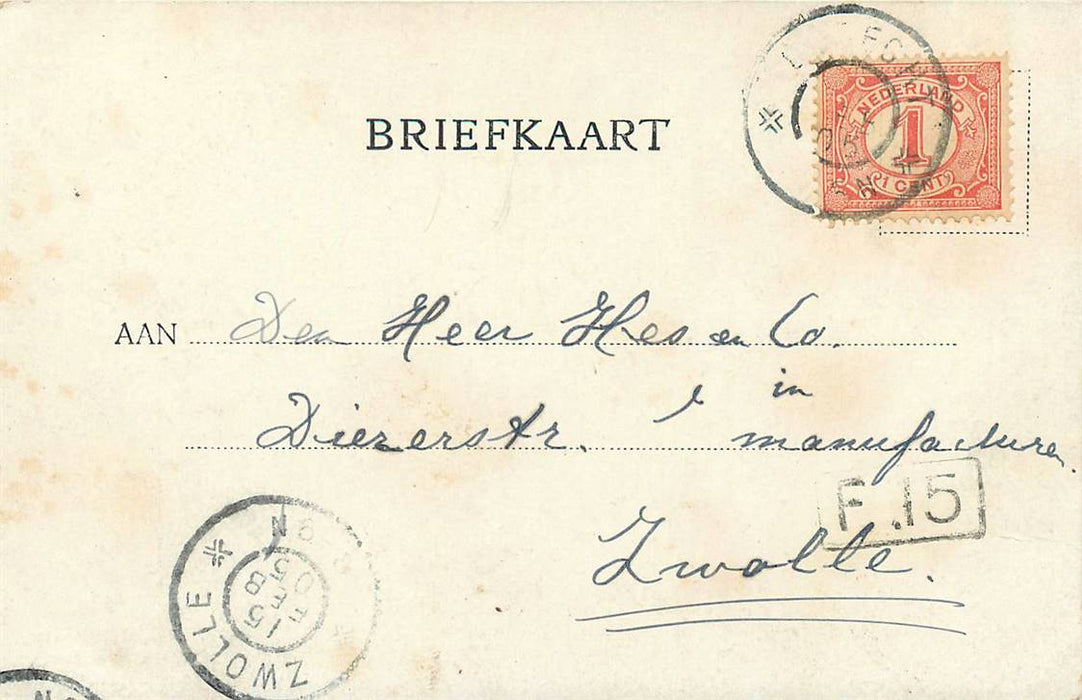 BRIEFKAART
NEDERLAND
1
1 CENT
AAN Den Heer Hes en Co.
in
Diezerstr. manufacturen.
F .15
Zwolle.
ZWOLLE
15